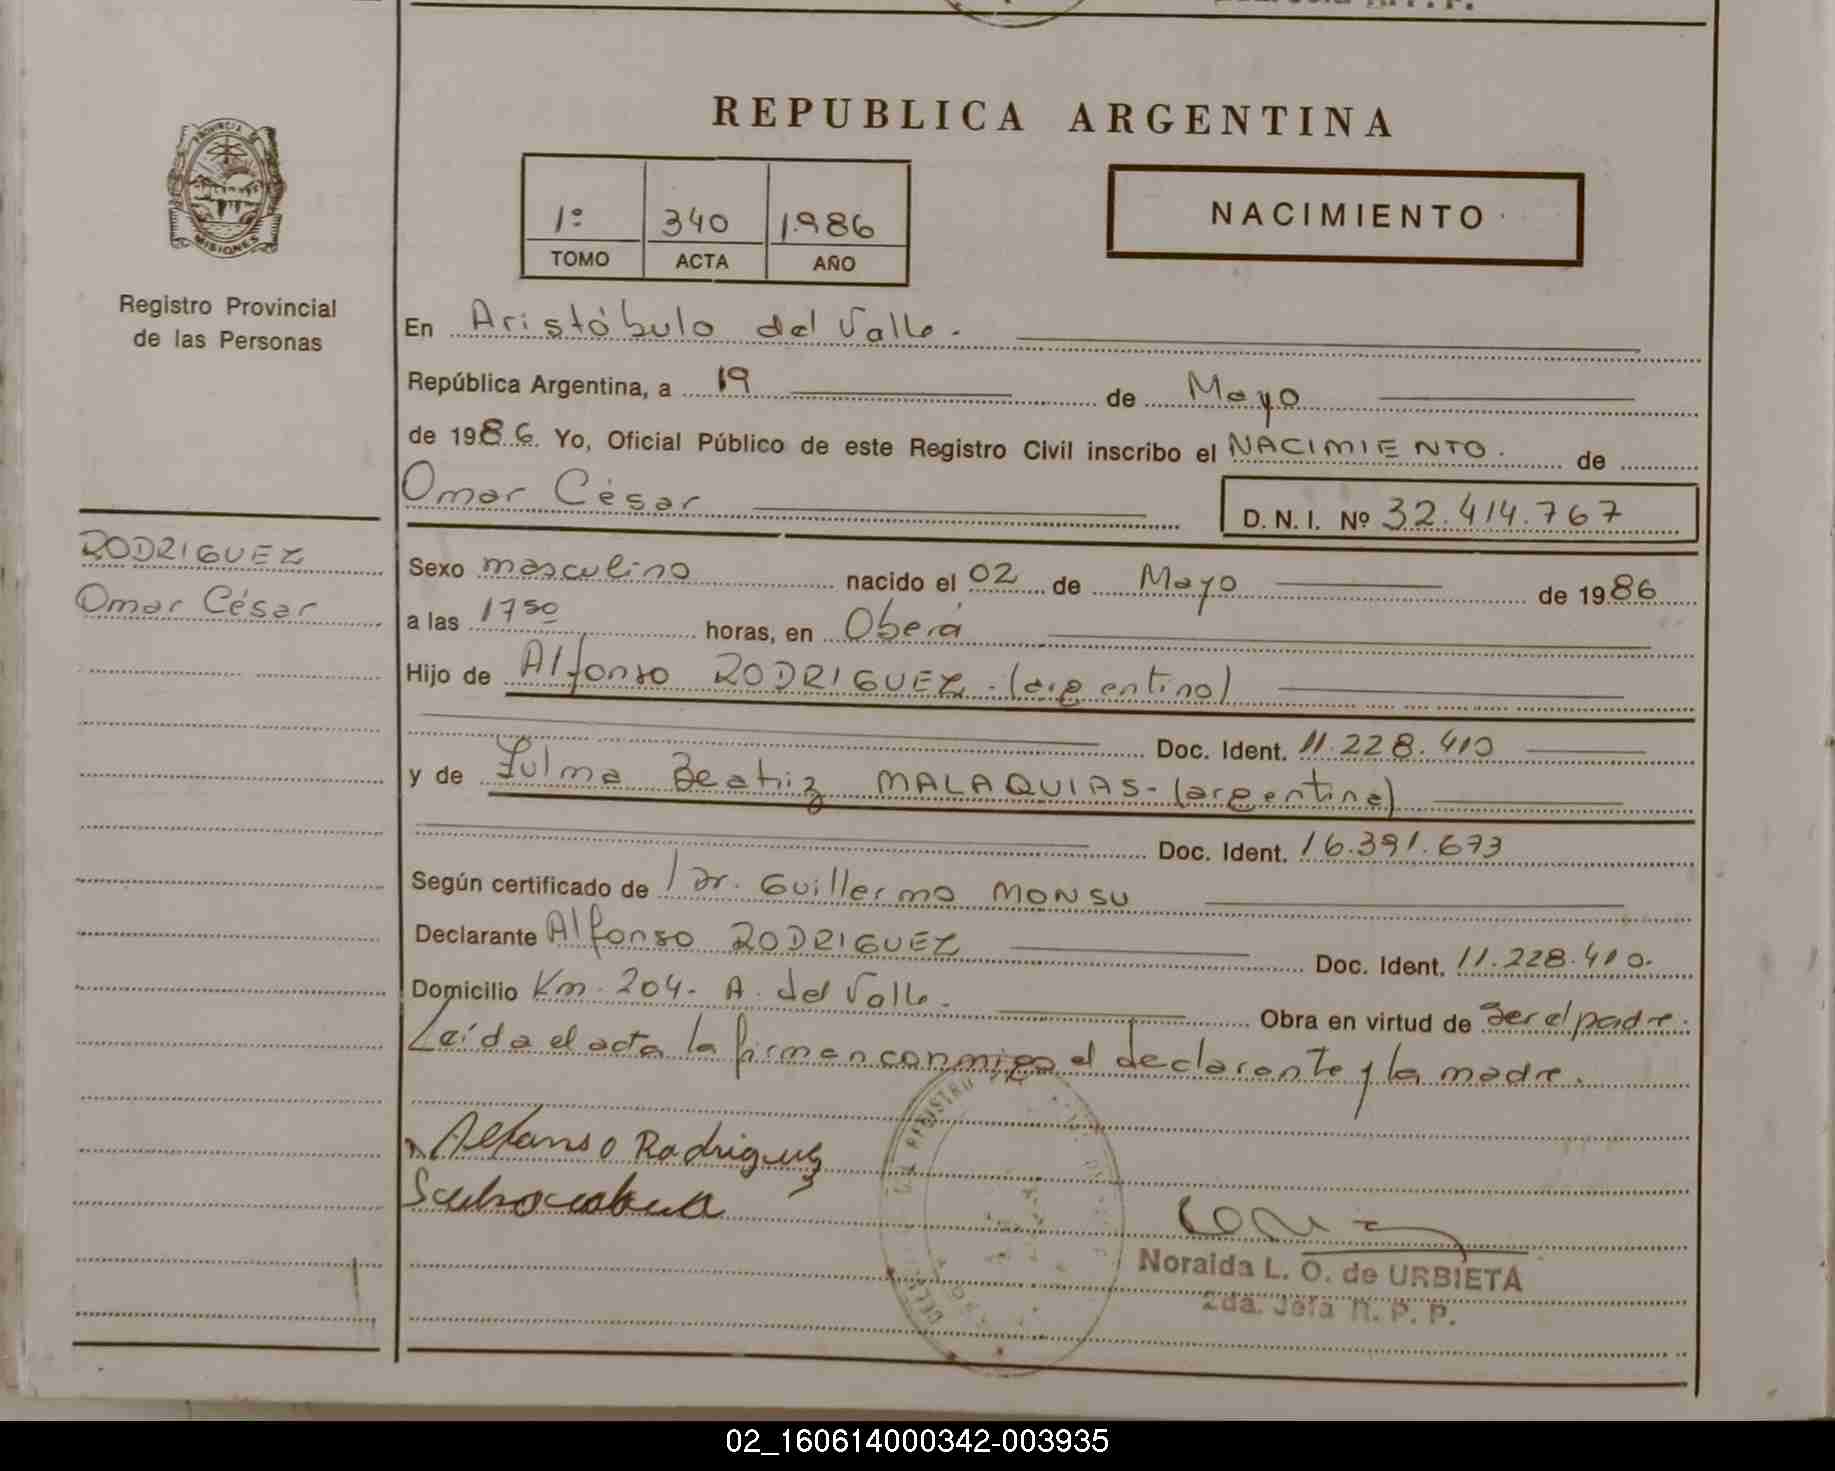 REPUBLICA ARGENTINA
PROVINCIA DE
MISIONES
Registro Provincial
de las Personas
1º 340 1.986
TOMO ACTA AÑO
NACIMIENTO
En Aristóbulo del Valle.
República Argentina, a 19 de Mayo
de 1986. Yo, Oficial Público de este Registro Civil inscribo el NACIMIENTO. de
Omar César D. N. I. Nº 32.414.767
RODRIGUEZ
Omar César
Sexo masculino nacido el 02 de Mayo de 1986
a las 17 50 horas, en Oberá
Hijo de Alfonso RODRIGUEZ - (argentino)
Doc. Ident. 11.228.410
y de Zulma Beatriz MALAQUIAS - (argentina)
Doc. Ident. 16.391.673
Según certificado de Dr. Guillermo MONSU
Declarante Alfonso RODRIGUEZ Doc. Ident. 11.228.410.
Domicilio Km. 204 - A. del Valle. Obra en virtud de Ser el padre.
Leída el acta la firman conmigo el declarante y la madre.
Alfonso Rodriguez
REGISTRO
Noraida L. O. de URBIETA
2da. Jefa R. P. P.
02_160614000342-003935